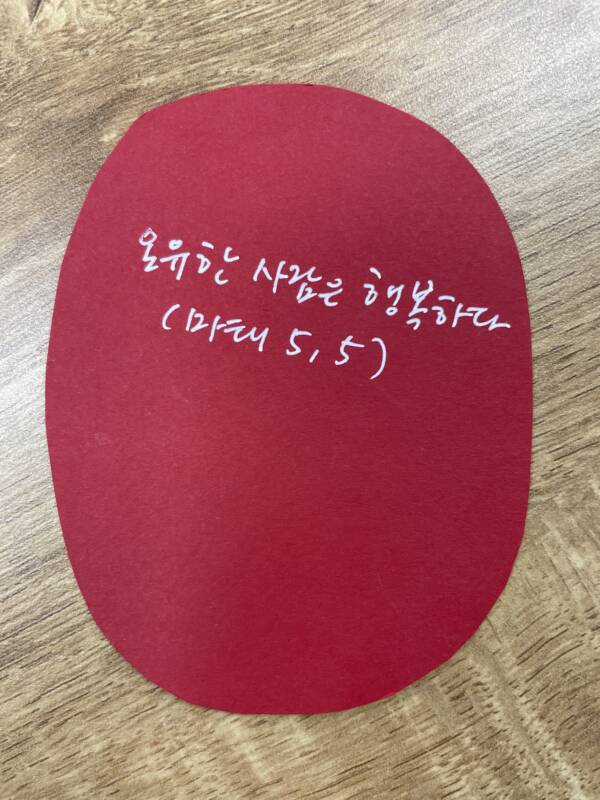 온유한 사람은 행복하다
(마태 5, 5)